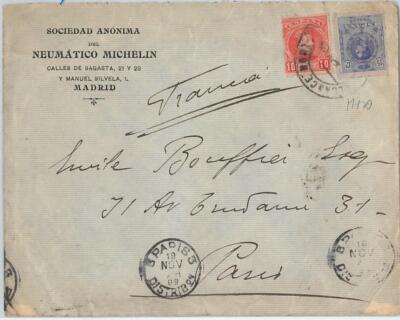 SOCIEDAD ANÓNIMA
DEL
NEUMÁTICO MICHELIN
CALLES DE SAGASTA, 21 Y 23
Y MANUEL SILVELA, 1,
MADRID
Francia
Emile Bouffier Esq
31
Paris
10 10
PARIS
19
NOV
09
DISTRIBON
PARIS
19
NOV